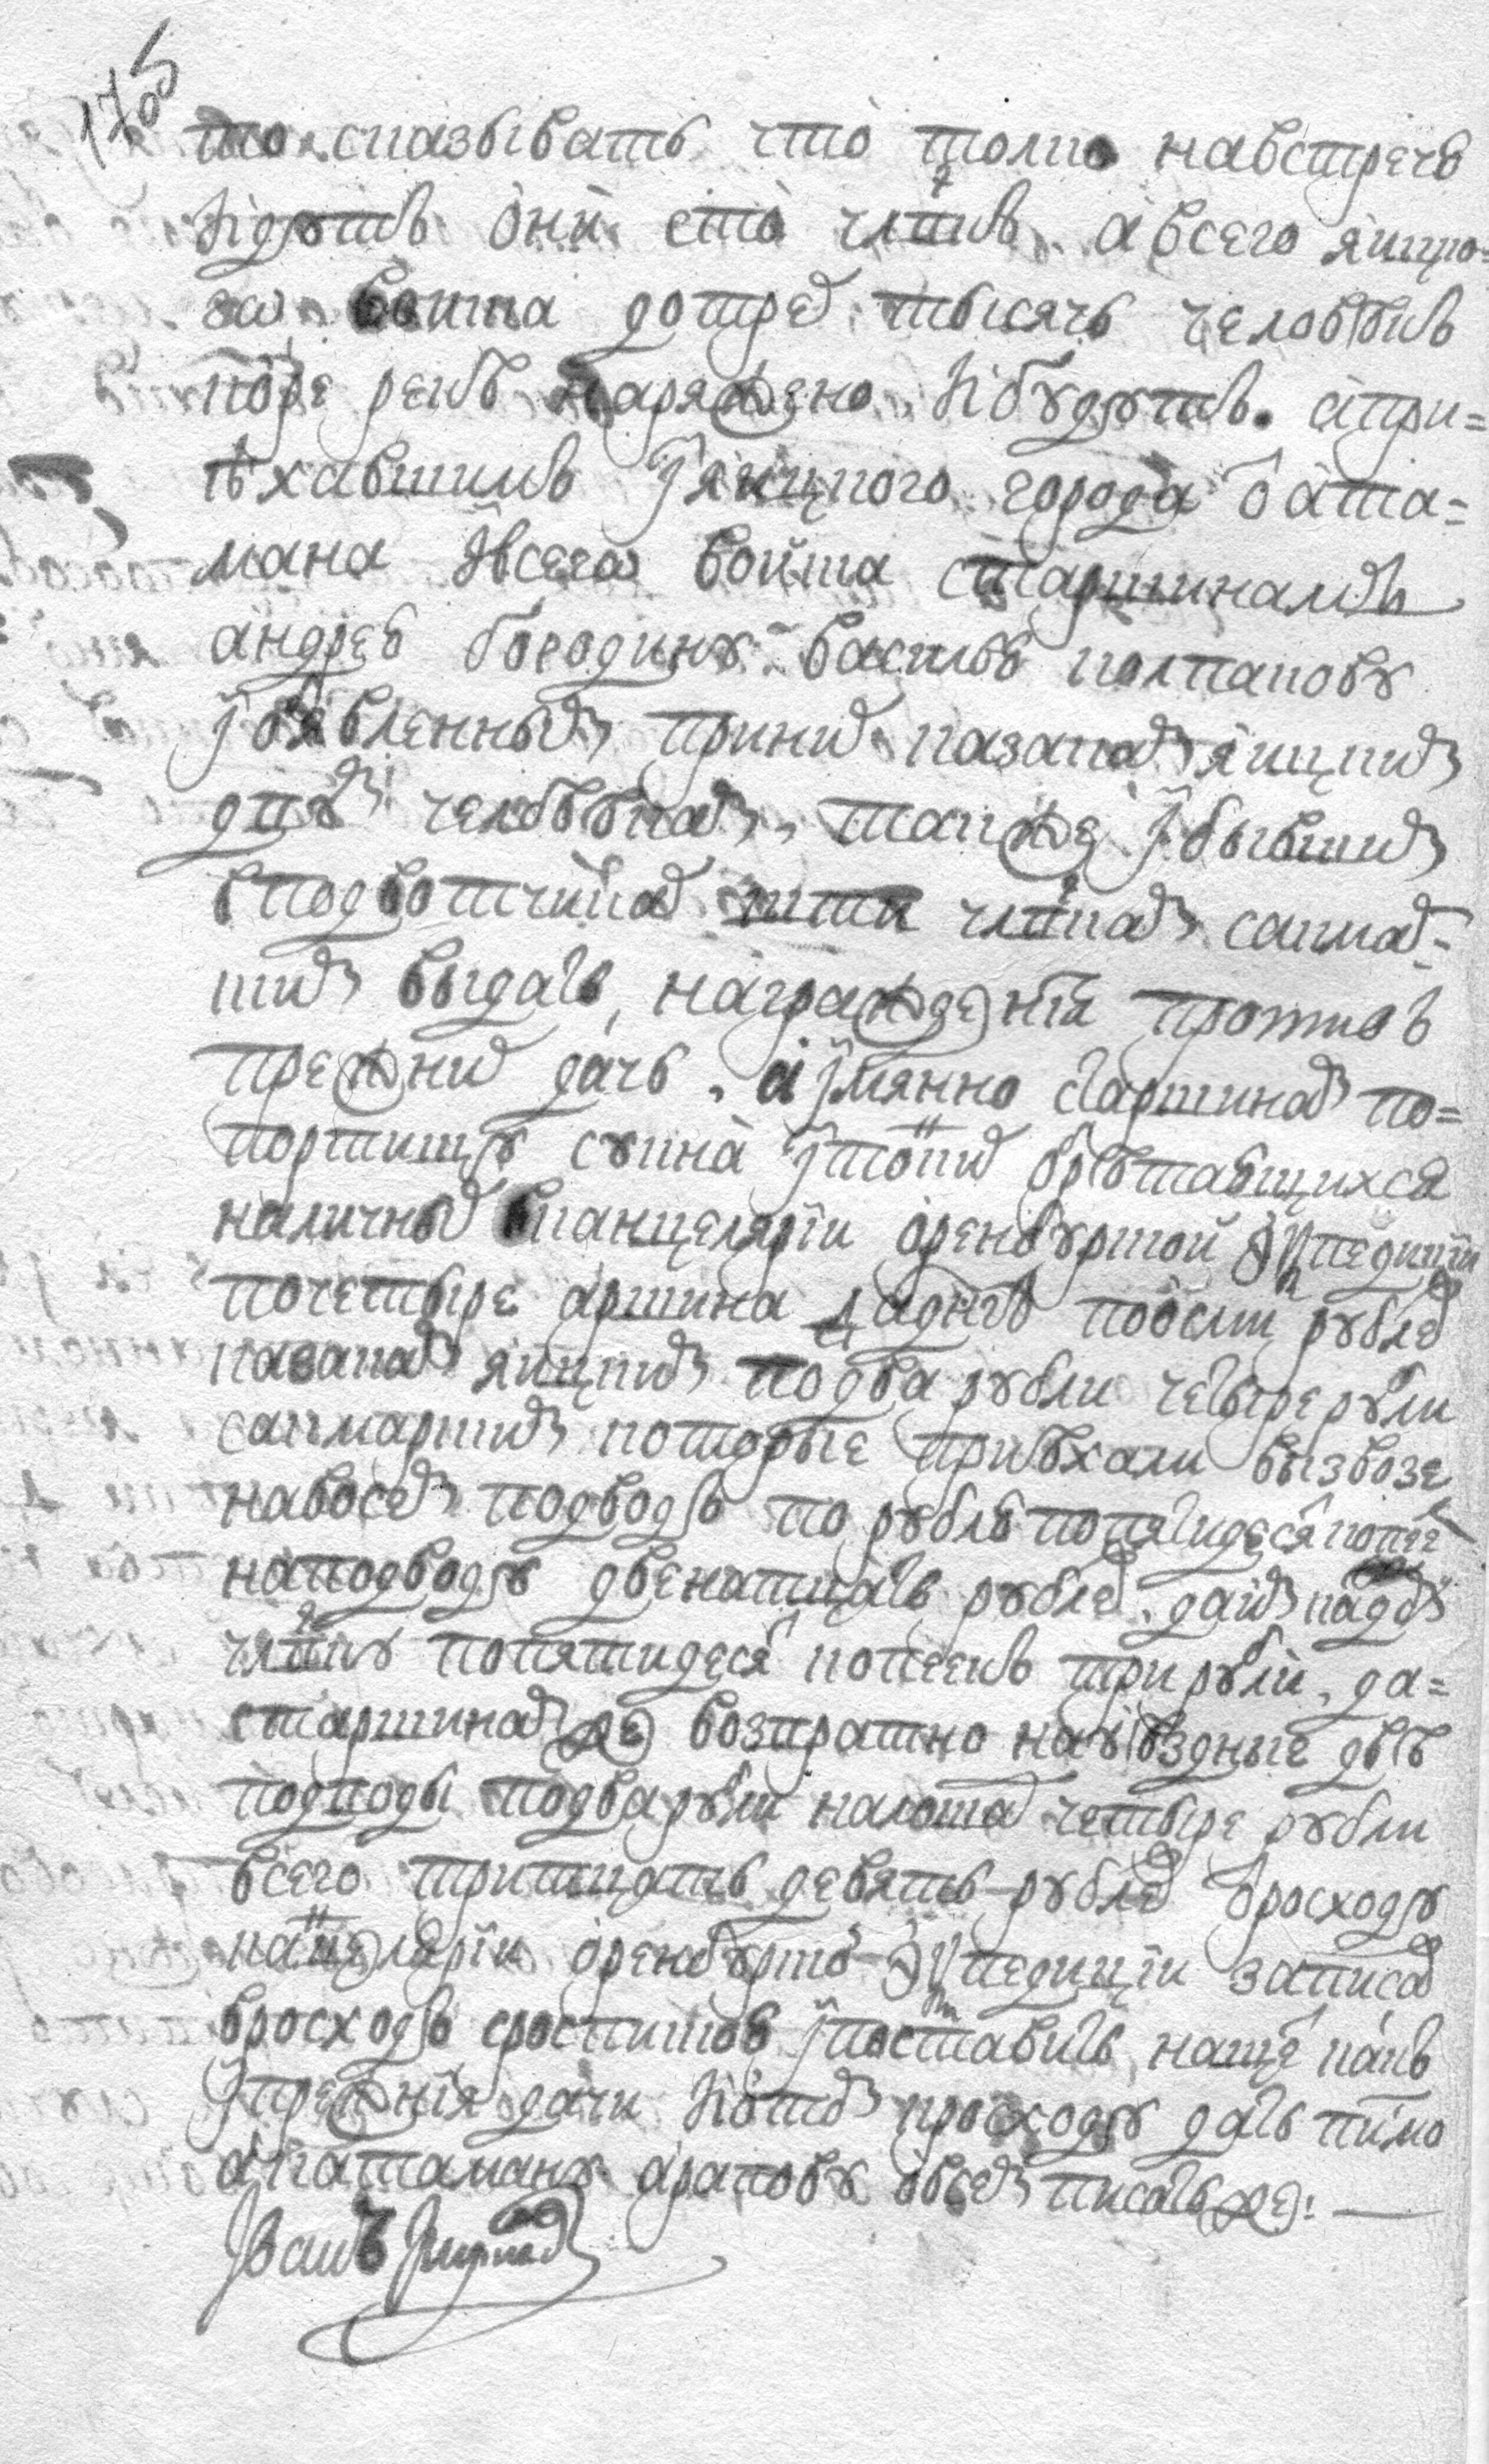 170б
то сказывать что толко навстречю
идутъ они сто члвкъ. а всего яицко=
го воиска до трех тысячъ человѣкъ
поре рекѣ наряжено и будутъ. а при=
ѣхавшимъ ѵ яицкого города от ата=
мана и всего войска старшинамъ
андрею бородину василью колпакову
ѵ обявленным при них казакам яицким
дву человѣкам, также ѵ бывшим
в подводчиках пяти члвкам сакмар=
ским выдать, награжденїя противъ
прежних дачь, а ѵмянно старшинам по=
портищу сукна ѵ толких обрѣтающихся
наличных в канцелярїи оренбурской экспедицїи
по четыре аршина а денегъ по осми рублев
казакам яицким по два рубли четыре рубли
сакмарским которые приѣхали в ызвозе
на восем подводъ по рублю по пятидесят копеек
на подводу двенатцать рублев, да им к адному
члвку по пятидесят копеекъ три рубли, да=
старшинам же возвратно на уѣздные двѣ
подводы по два рубли на лошад четыре рубли
всего тритцать девять рублев в росходу
канцелярїи оренбурской экспедицїи записав
в росходъ с роспискою ѵ поставить на щет какъ
ѵ прежнїя дачи и о том к росходу дать писмо
а к атаману арапову о всем писать же: —
Ѵванъ Кирилов